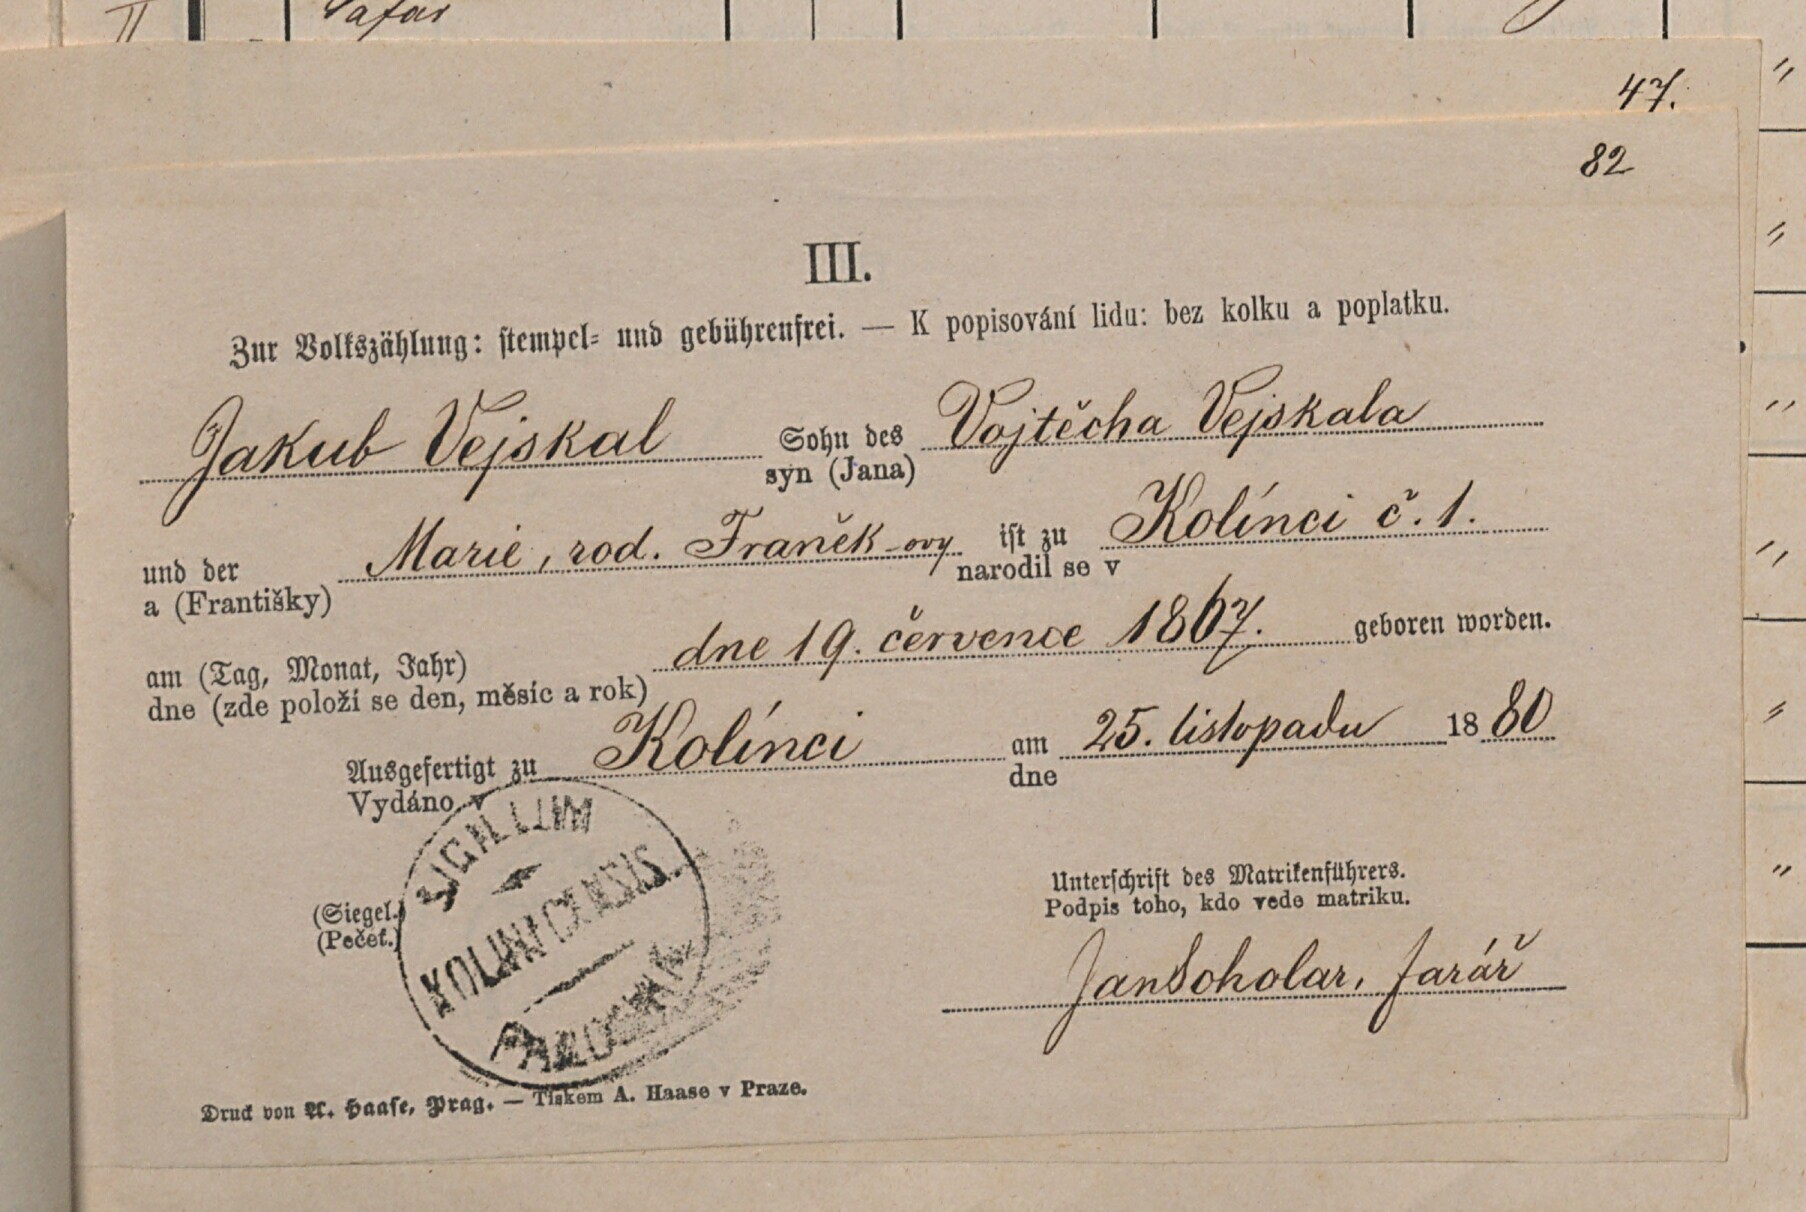 II
Šafář
47.
82
III.
Zur Volkszählung: stempel- und gebührenfrei. — K popisování lidu: bez kolku a poplatku.
Jakub Vejskal Sohn des Vojtěcha Vejskala
syn (Jana)
und der Marie, rod. Franěk-ovy ist zu Kolínci č. 1.
a (Františky) narodil se v
am (Tag, Monat, Jahr) dne 19. července 1867. geboren worden.
dne (zde položí se den, měsíc a rok)
Ausgefertigt zu Kolínci am 25. listopadu 1880
Vydáno v dne
SIGILLUM
KOLINECENSIS
PAROCHIAE
(Siegel.)
(Pečeť.)
Unterschrift des Matrikenführers.
Podpis toho, kdo vede matriku.
Jan Soholar, farář
Druck von A. Haase, Prag. — Tiskem A. Haase v Praze.